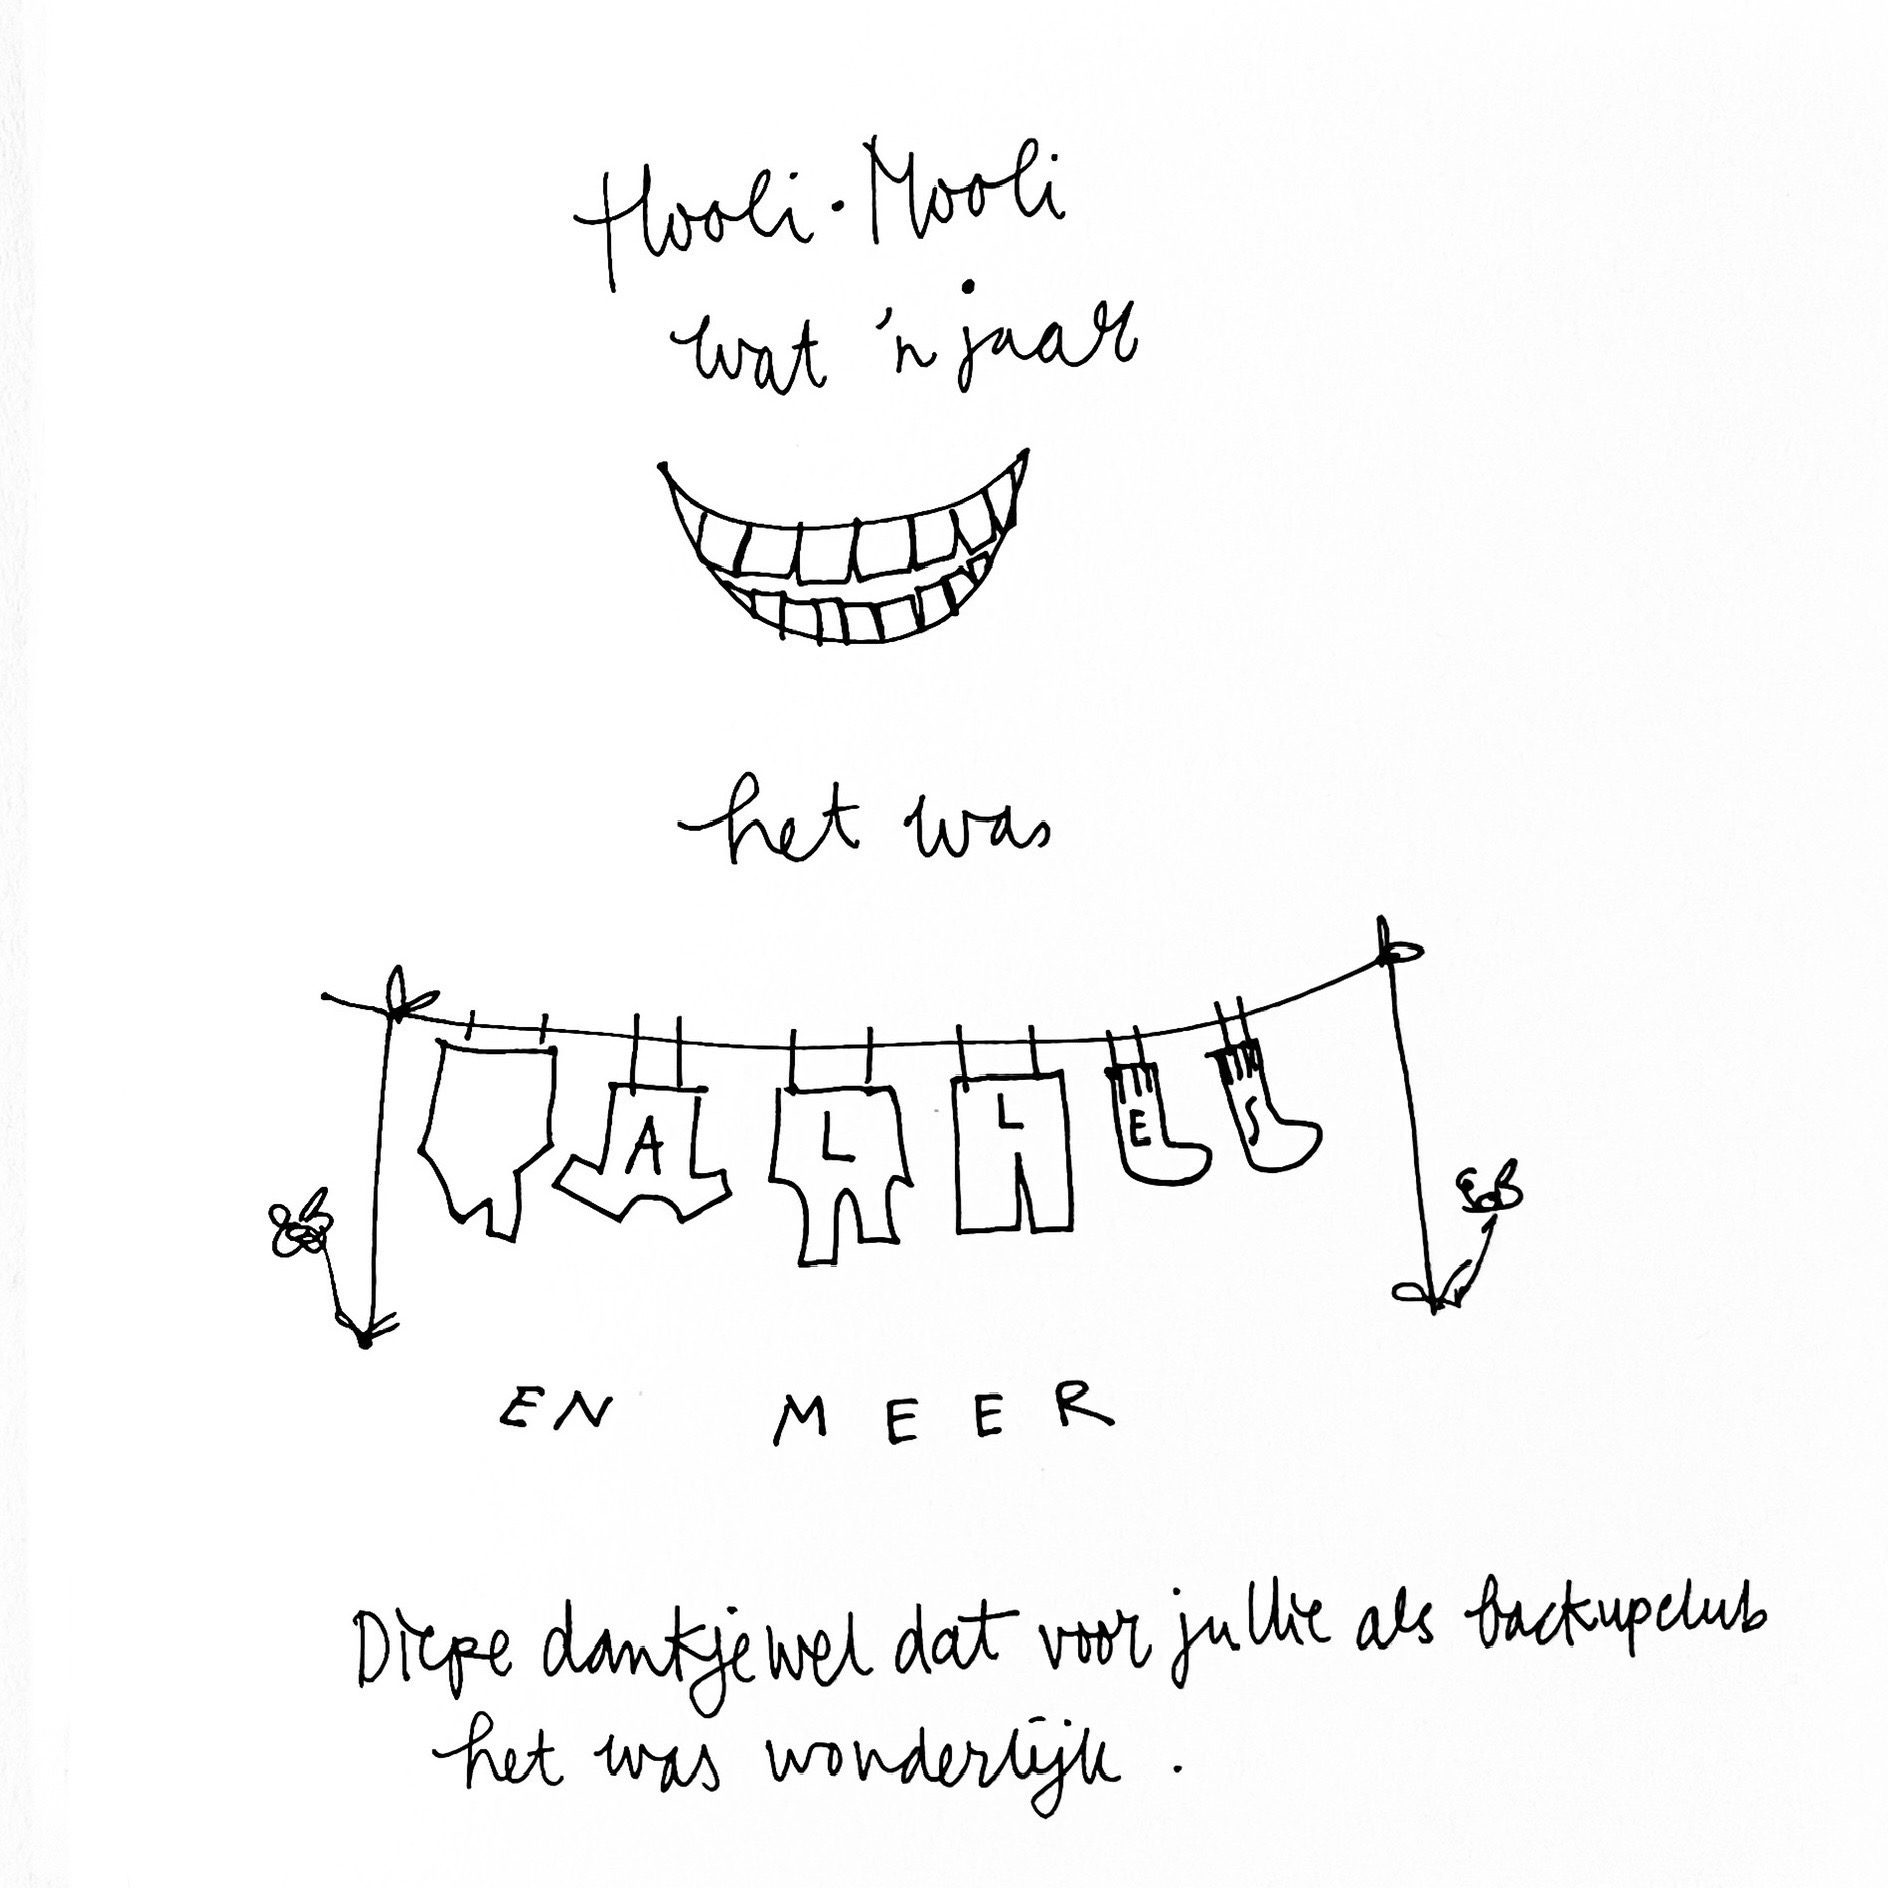 Hooli · Mooli
wat 'n jaar
het was
ALLES
EN MEER
Diepe dankjewel dat voor jullie als backupclub
het was wonderlijk .